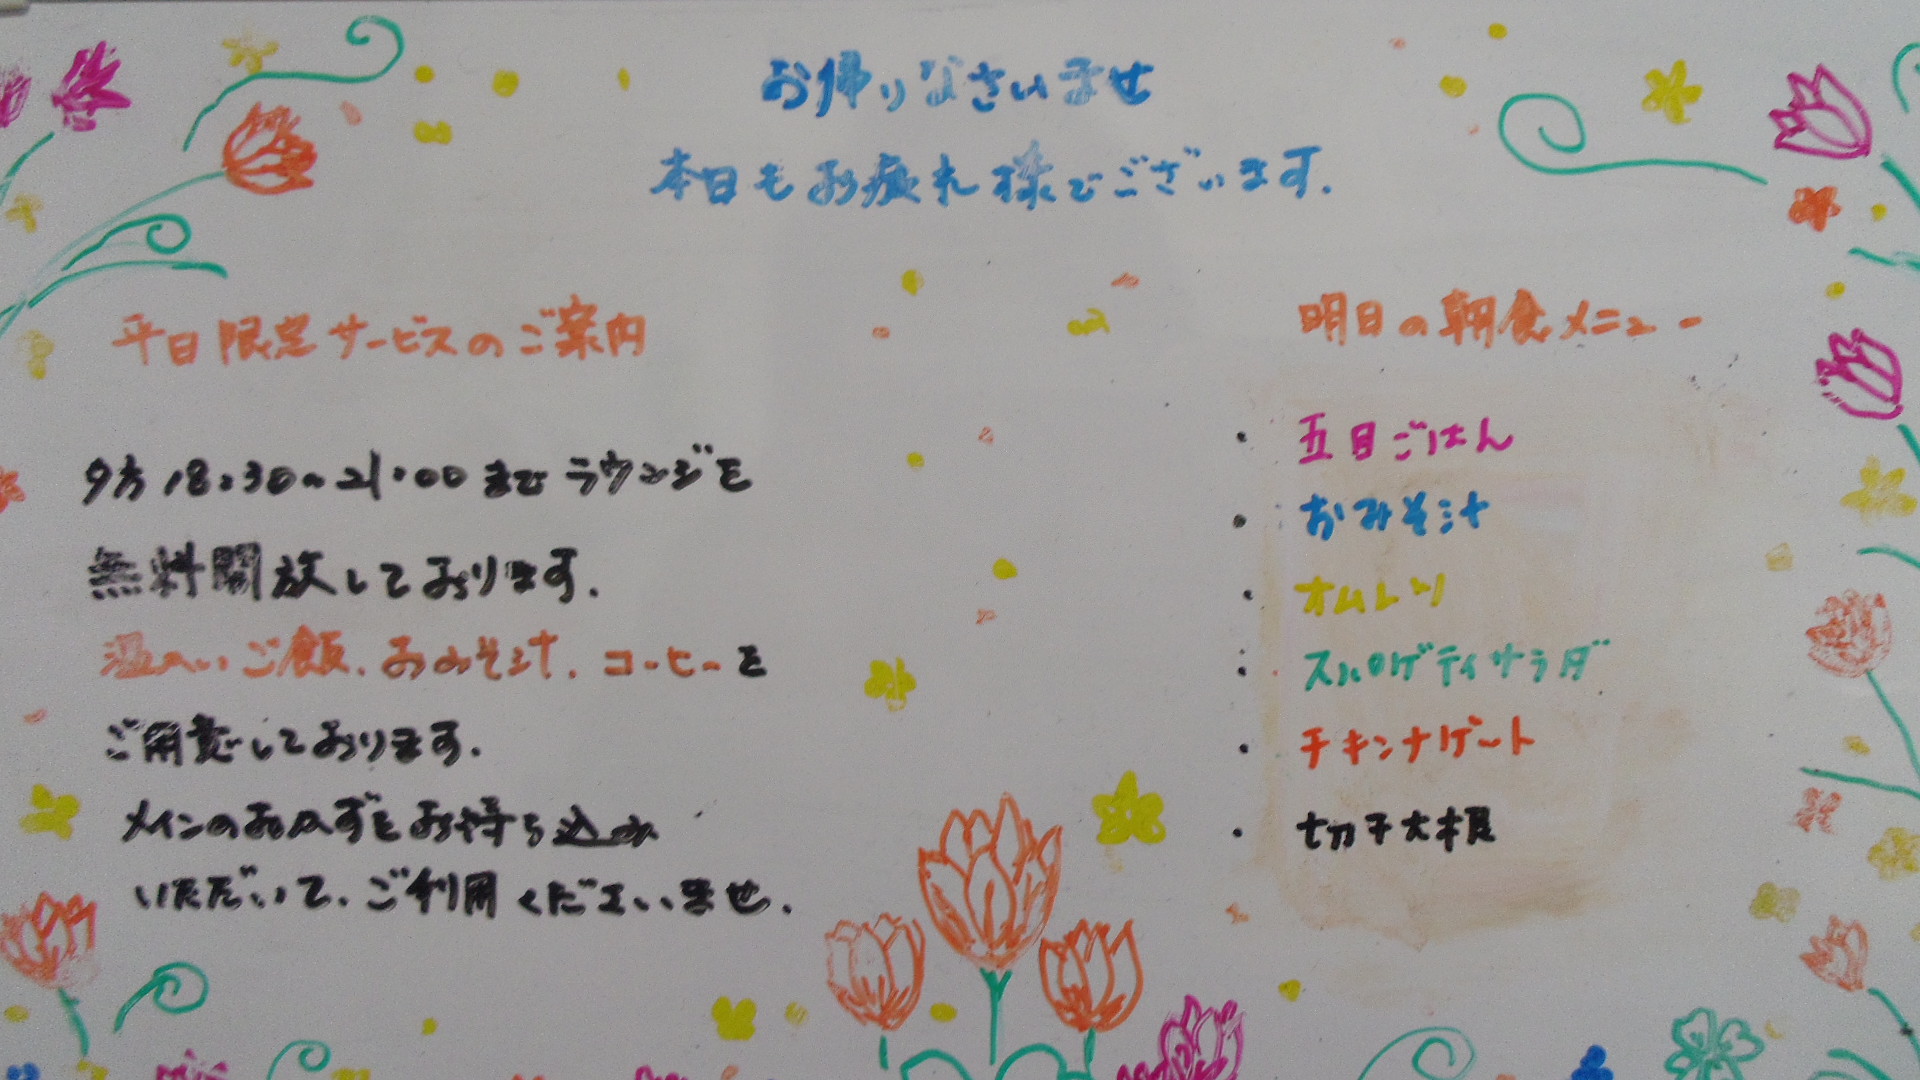 お帰りなさいませ
本日もお疲れ様でございます.
平日限定サービスのご案内
夕方18:30~21:00までラウンジを
無料開放しております.
温かいご飯.おみそ汁.コーヒーを
ご用意しております.
メインのおかずをお持ち込み
いただいて.ご利用くださいませ.
明日の朝食メニュー
・五目ごはん
・おみそ汁
・オムレツ
・スパゲティサラダ
・チキンナゲット
・切干大根